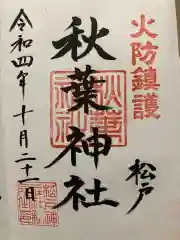 火防鎮護
秋葉神社
松戸
令和四年十月二十一日